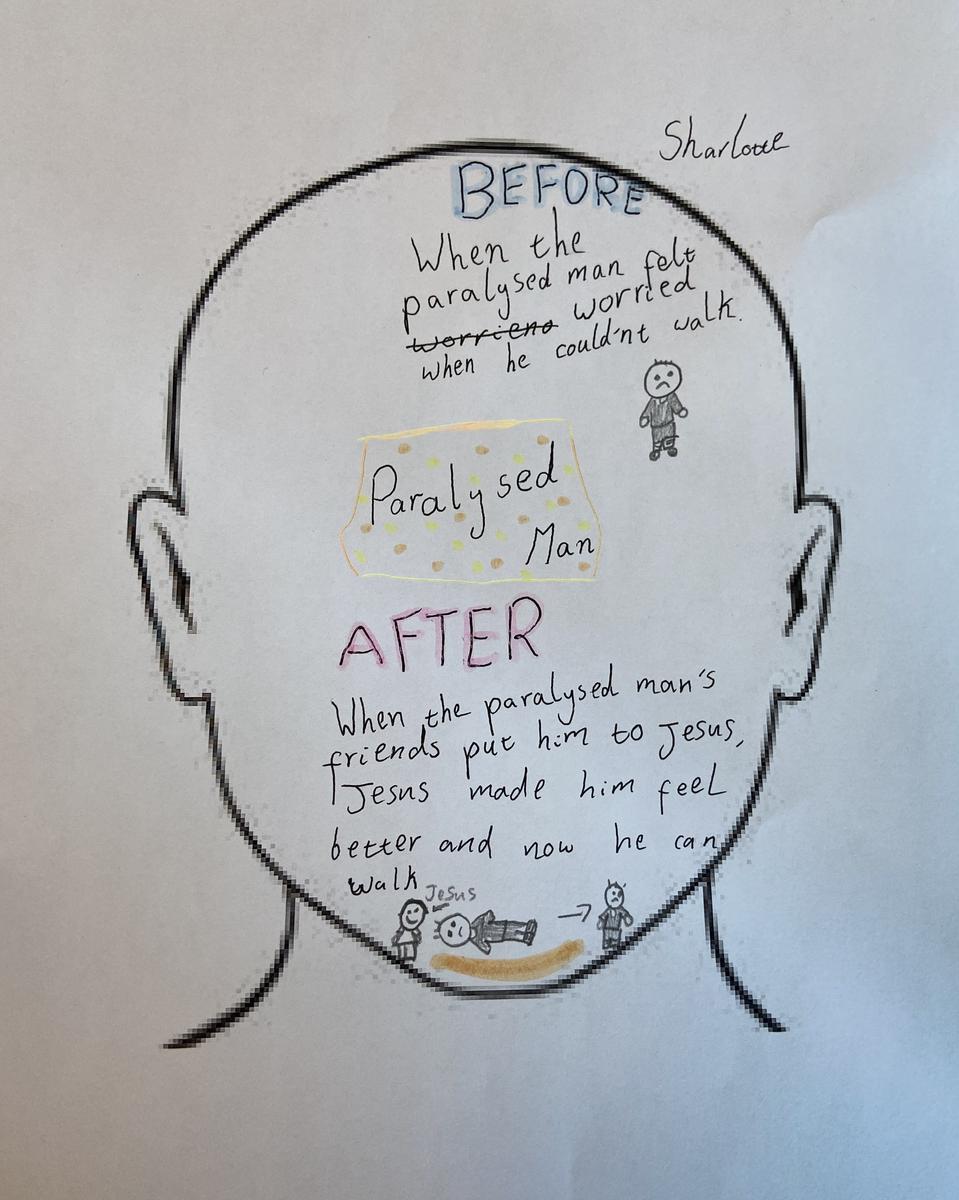 Sharlotte
BEFORE
When the
paralysed man felt
worrieno worried
when he could'nt walk.
Paralysed
Man
AFTER
When the paralysed man's
friends put him to Jesus,
Jesus made him feel
better and now he can
walk
Jesus